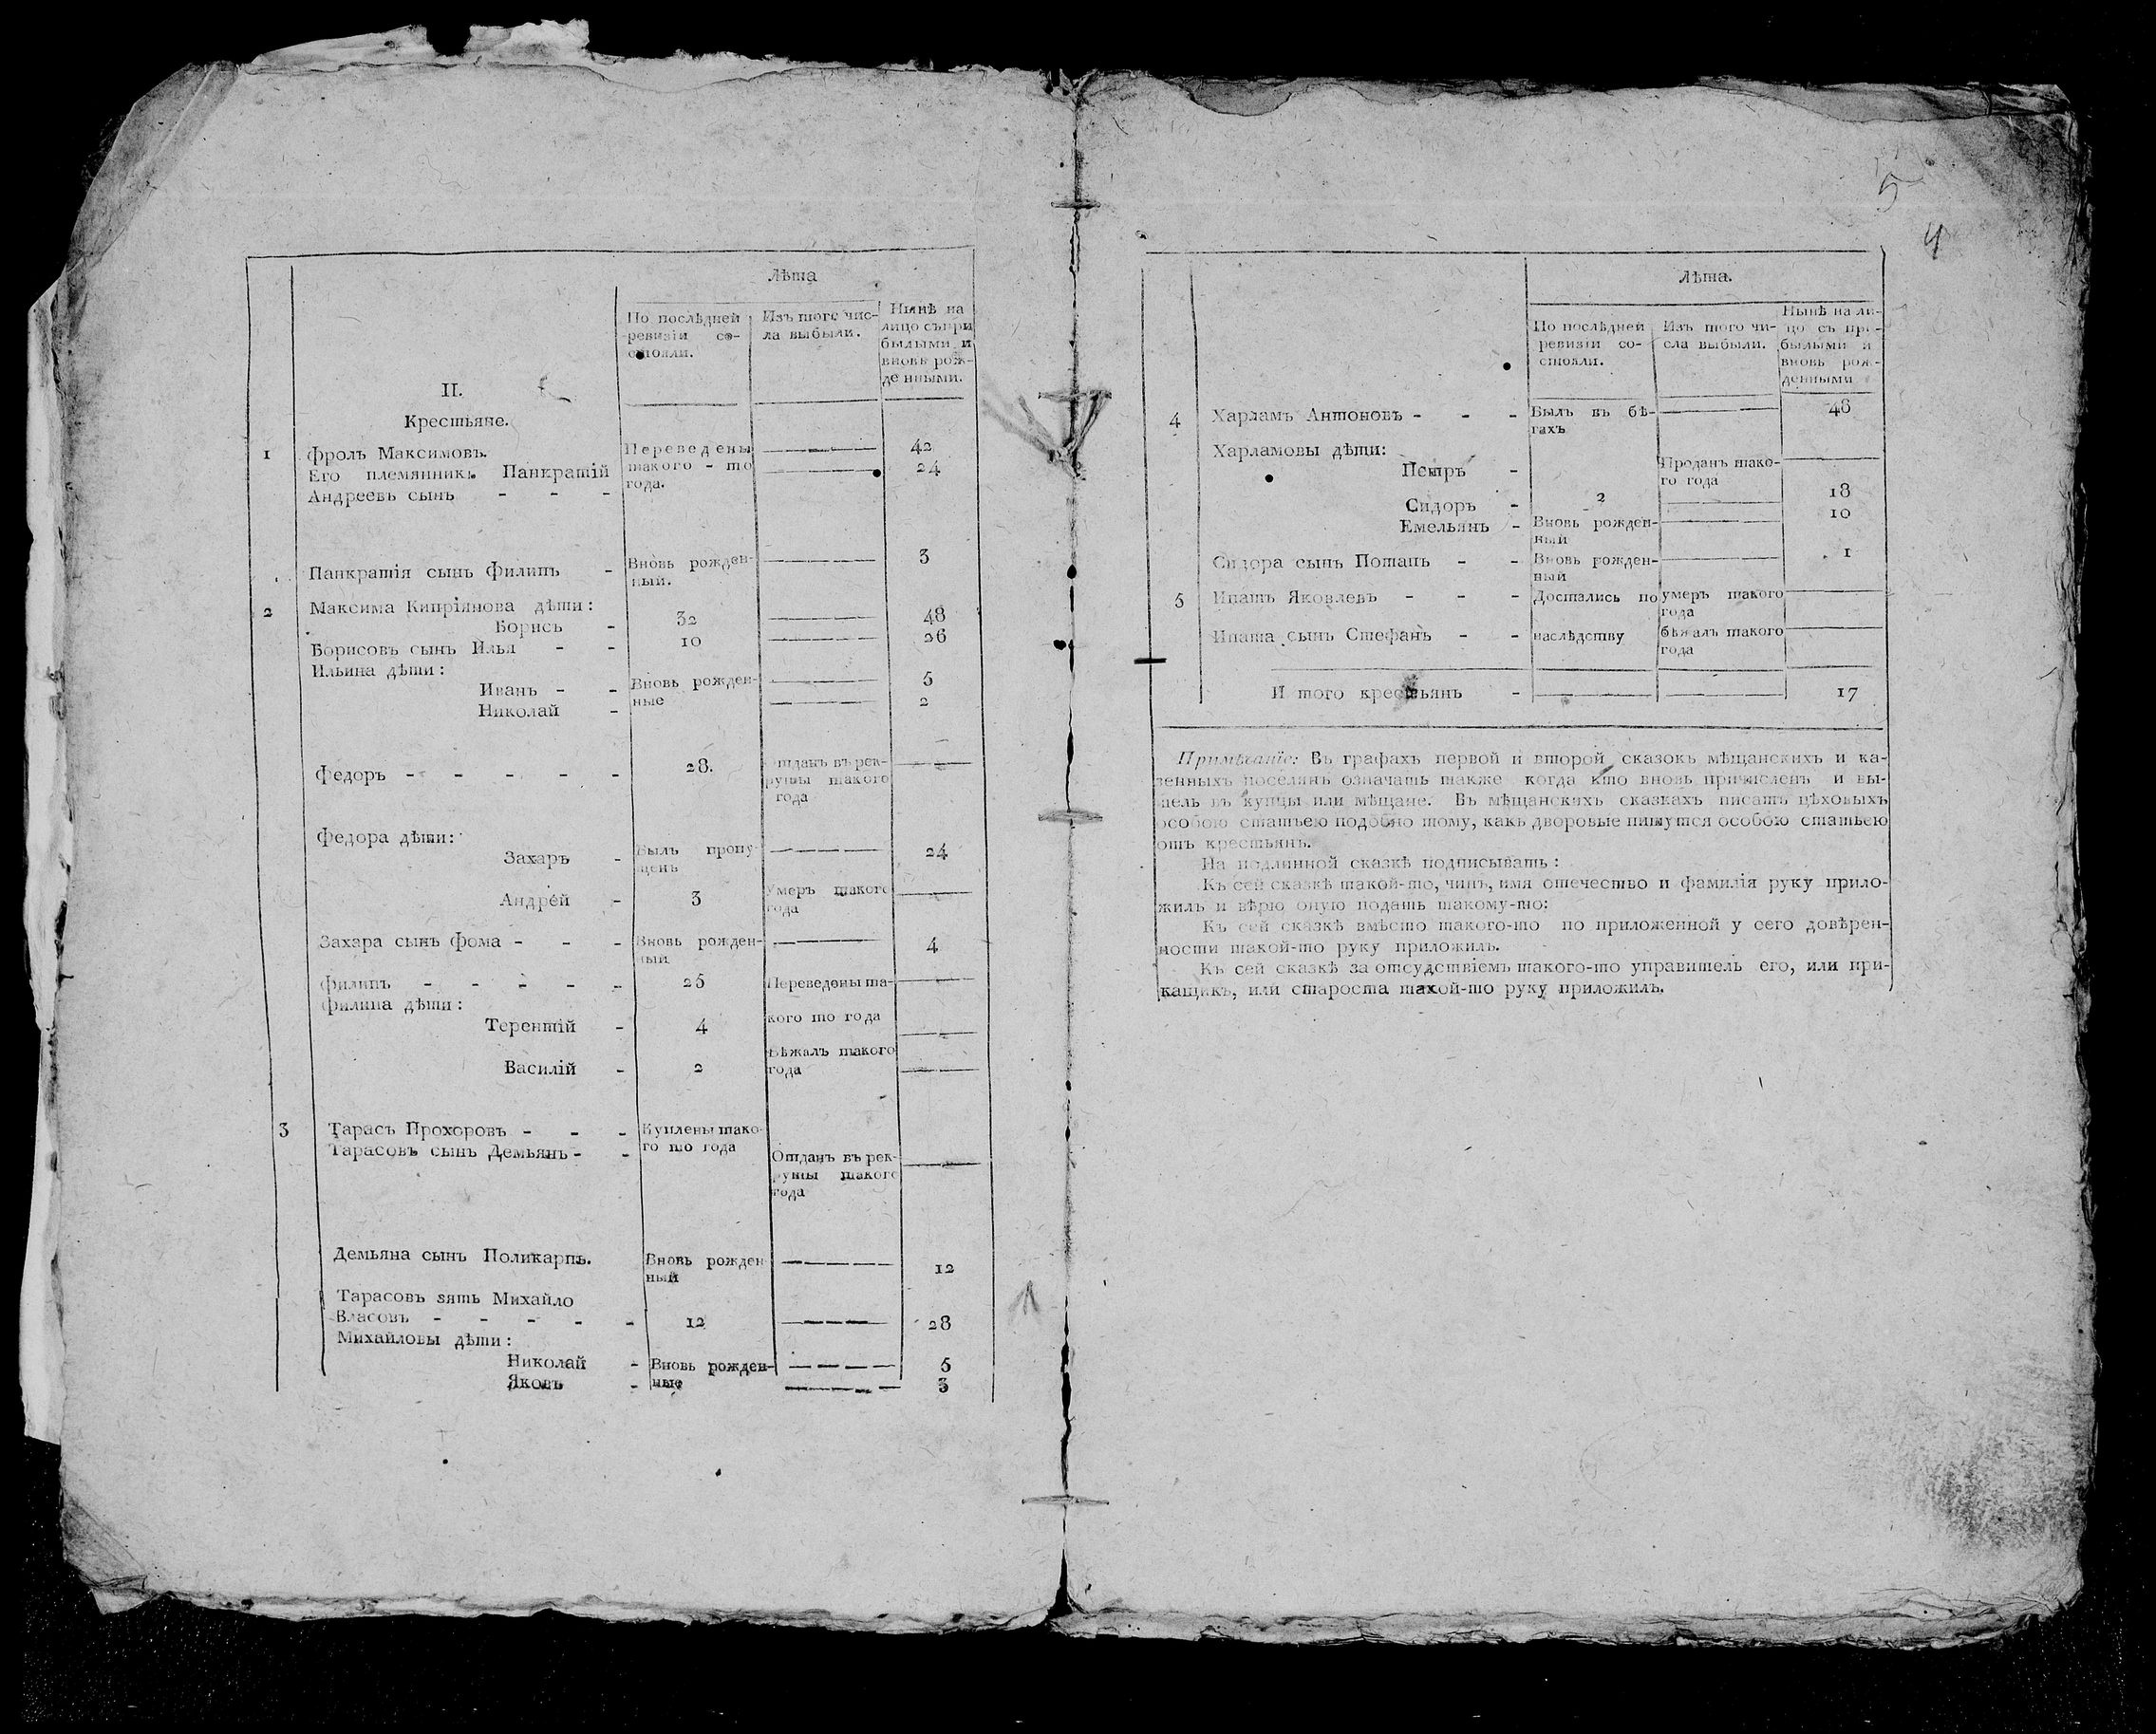 Лѣта
По послѣдней Изъ того чис- Нынѣ на
ревизіи со- ла выбыли. лицо съ при
стояли. былыми и
вновь рож-
денными.
II.
Крестьяне.
1 Фролъ Максимовъ. Переведены ——— 42
Его племянникъ Панкратій такого - то ——— 24
Андреевъ сынъ - - - года.
Панкратія сынъ Филипъ - Вновь рожден- ——— 3
ный.
2 Максима Кипріянова дѣти:
Борисъ - 32 ——— 48
Борисовъ сынъ Илья - - 10 ——— 26
Ильина дѣти:
Иванъ - - Вновь рожден- ——— 5
Николай - ные ——— 2
Федоръ - - - - - 28. Отданъ въ рек- ———
руты такого
года
Федора дѣти:
Захаръ - Былъ пропу- ——— 24
щенъ
Андрей - 3 Умеръ такого ———
года
Захара сынъ Фома - - - Вновь рожден- ——— 4
ный
Филипъ - - - - - 25 Переведены та- ———
Филипа дѣти:
Терентій - 4 кого то года ———
Василій - 2 Бѣжалъ такого ———
года
3 Тарасъ Прохоровъ - - - Куплены тако-
Тарасовъ сынъ Демьянъ - - го то года Отданъ въ рек- ———
руты такого
года
Демьяна сынъ Поликарпъ. Вновь рожден- ——— 12
ный
Тарасовъ зять Михайло
Власовъ - - - - - 12 ——— 28
Михайловы дѣти:
Николай - Вновь рожден- ——— 5
Яковъ - ные ——— 3
5
4
Лѣта.
По послѣдней Изъ того чи- Нынѣ на ли-
ревизіи со- сла выбыли. цо съ при-
стояли. былыми и
вновь рож-
денными
4 Харламъ Антоновъ - - - Былъ въ бѣ- ——— 46
гахъ
Харламовы дѣти:
Петръ - Проданъ тако- ———
го года
Сидоръ - 2 ——— 18
Емельянъ - Вновь рожден- ——— 10
ный
Сидора сынъ Потапъ - - Вновь рожден- ——— 1
ный
5 Ипатъ Яковлевъ - - - Достались по умеръ такого ———
года
Ипата сынъ Стефанъ - - наслѣдству бѣжалъ такого ———
года
И того крестьянъ - ——— ——— 17
Примѣчаніе: Въ графахъ первой и второй сказокъ мѣщанскихъ и ка-
зенныхъ поселянъ означать также когда кто вновь причисленъ и вы-
шелъ въ купцы или мѣщане. Въ мѣщанскихъ сказкахъ писать цѣховыхъ
особою статьею подобно тому, какъ дворовые пишутся особою статьею
отъ крестьянъ.
На подлинной сказкѣ подписывать:
Къ сей сказкѣ такой-то, чинъ, имя отечество и фамилія руку прило-
жилъ и вѣрю оную подать такому-то:
Къ сей сказкѣ вмѣсто такого-то по приложенной у сего довѣрен-
ности такой-то руку приложилъ.
Къ сей сказкѣ за отсудствіемъ такого-то управитель его, или при-
кащикъ, или староста такой-то руку приложилъ.